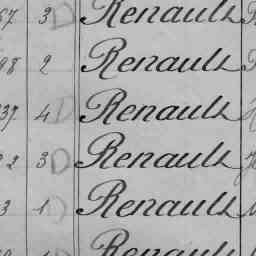 57 3 D Renault
98 2 Renault
37 4 D Renault
2 3 D Renault
3 1 D Renault
Renault